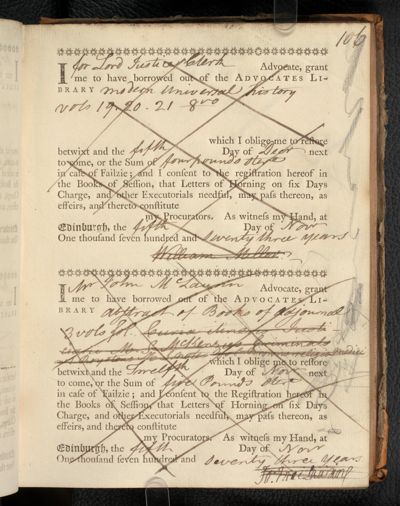 106
I for Lord Justice Clerk Advocate, grant
me to have borrowed out of the ADVOCATES LI-
BRARY modern universal history
vols 19. 20. 21 8vo
which I oblige me to restore
betwixt and the fifth Day of Decr next
to come, or the Sum of four pounds
in case of Failzie; and I consent to the registration hereof in
the Books of Session, that Letters of Horning on six Days
Charge, and other Executorials needful, may pass thereon, as
effeirs, and thereto constitute
my Procurators. As witness my Hand, at
Edinburgh, the fifth Day of Novr
One thousand seven hundred and seventy three years
William
I Mr John McLaurin Advocate, grant
me to have borrowed out of the ADVOCATES LI-
BRARY abstract of Books of adjournal
3 vols fol.
McKenzie's Criminals
which I oblige me to restore
betwixt and the twelfth Day of Novr next
to come, or the Sum of five Pounds
in case of Failzie; and I consent to the Registration hereof in
the Books of Session, that Letters of Horning on six Days
Charge, and other Executorials needful, may pass thereon, as
effeirs, and thereto constitute
my Procurators. As witness my Hand, at
Edinburgh, the fifth Day of Novr
One thousand seven hundred and seventy three years